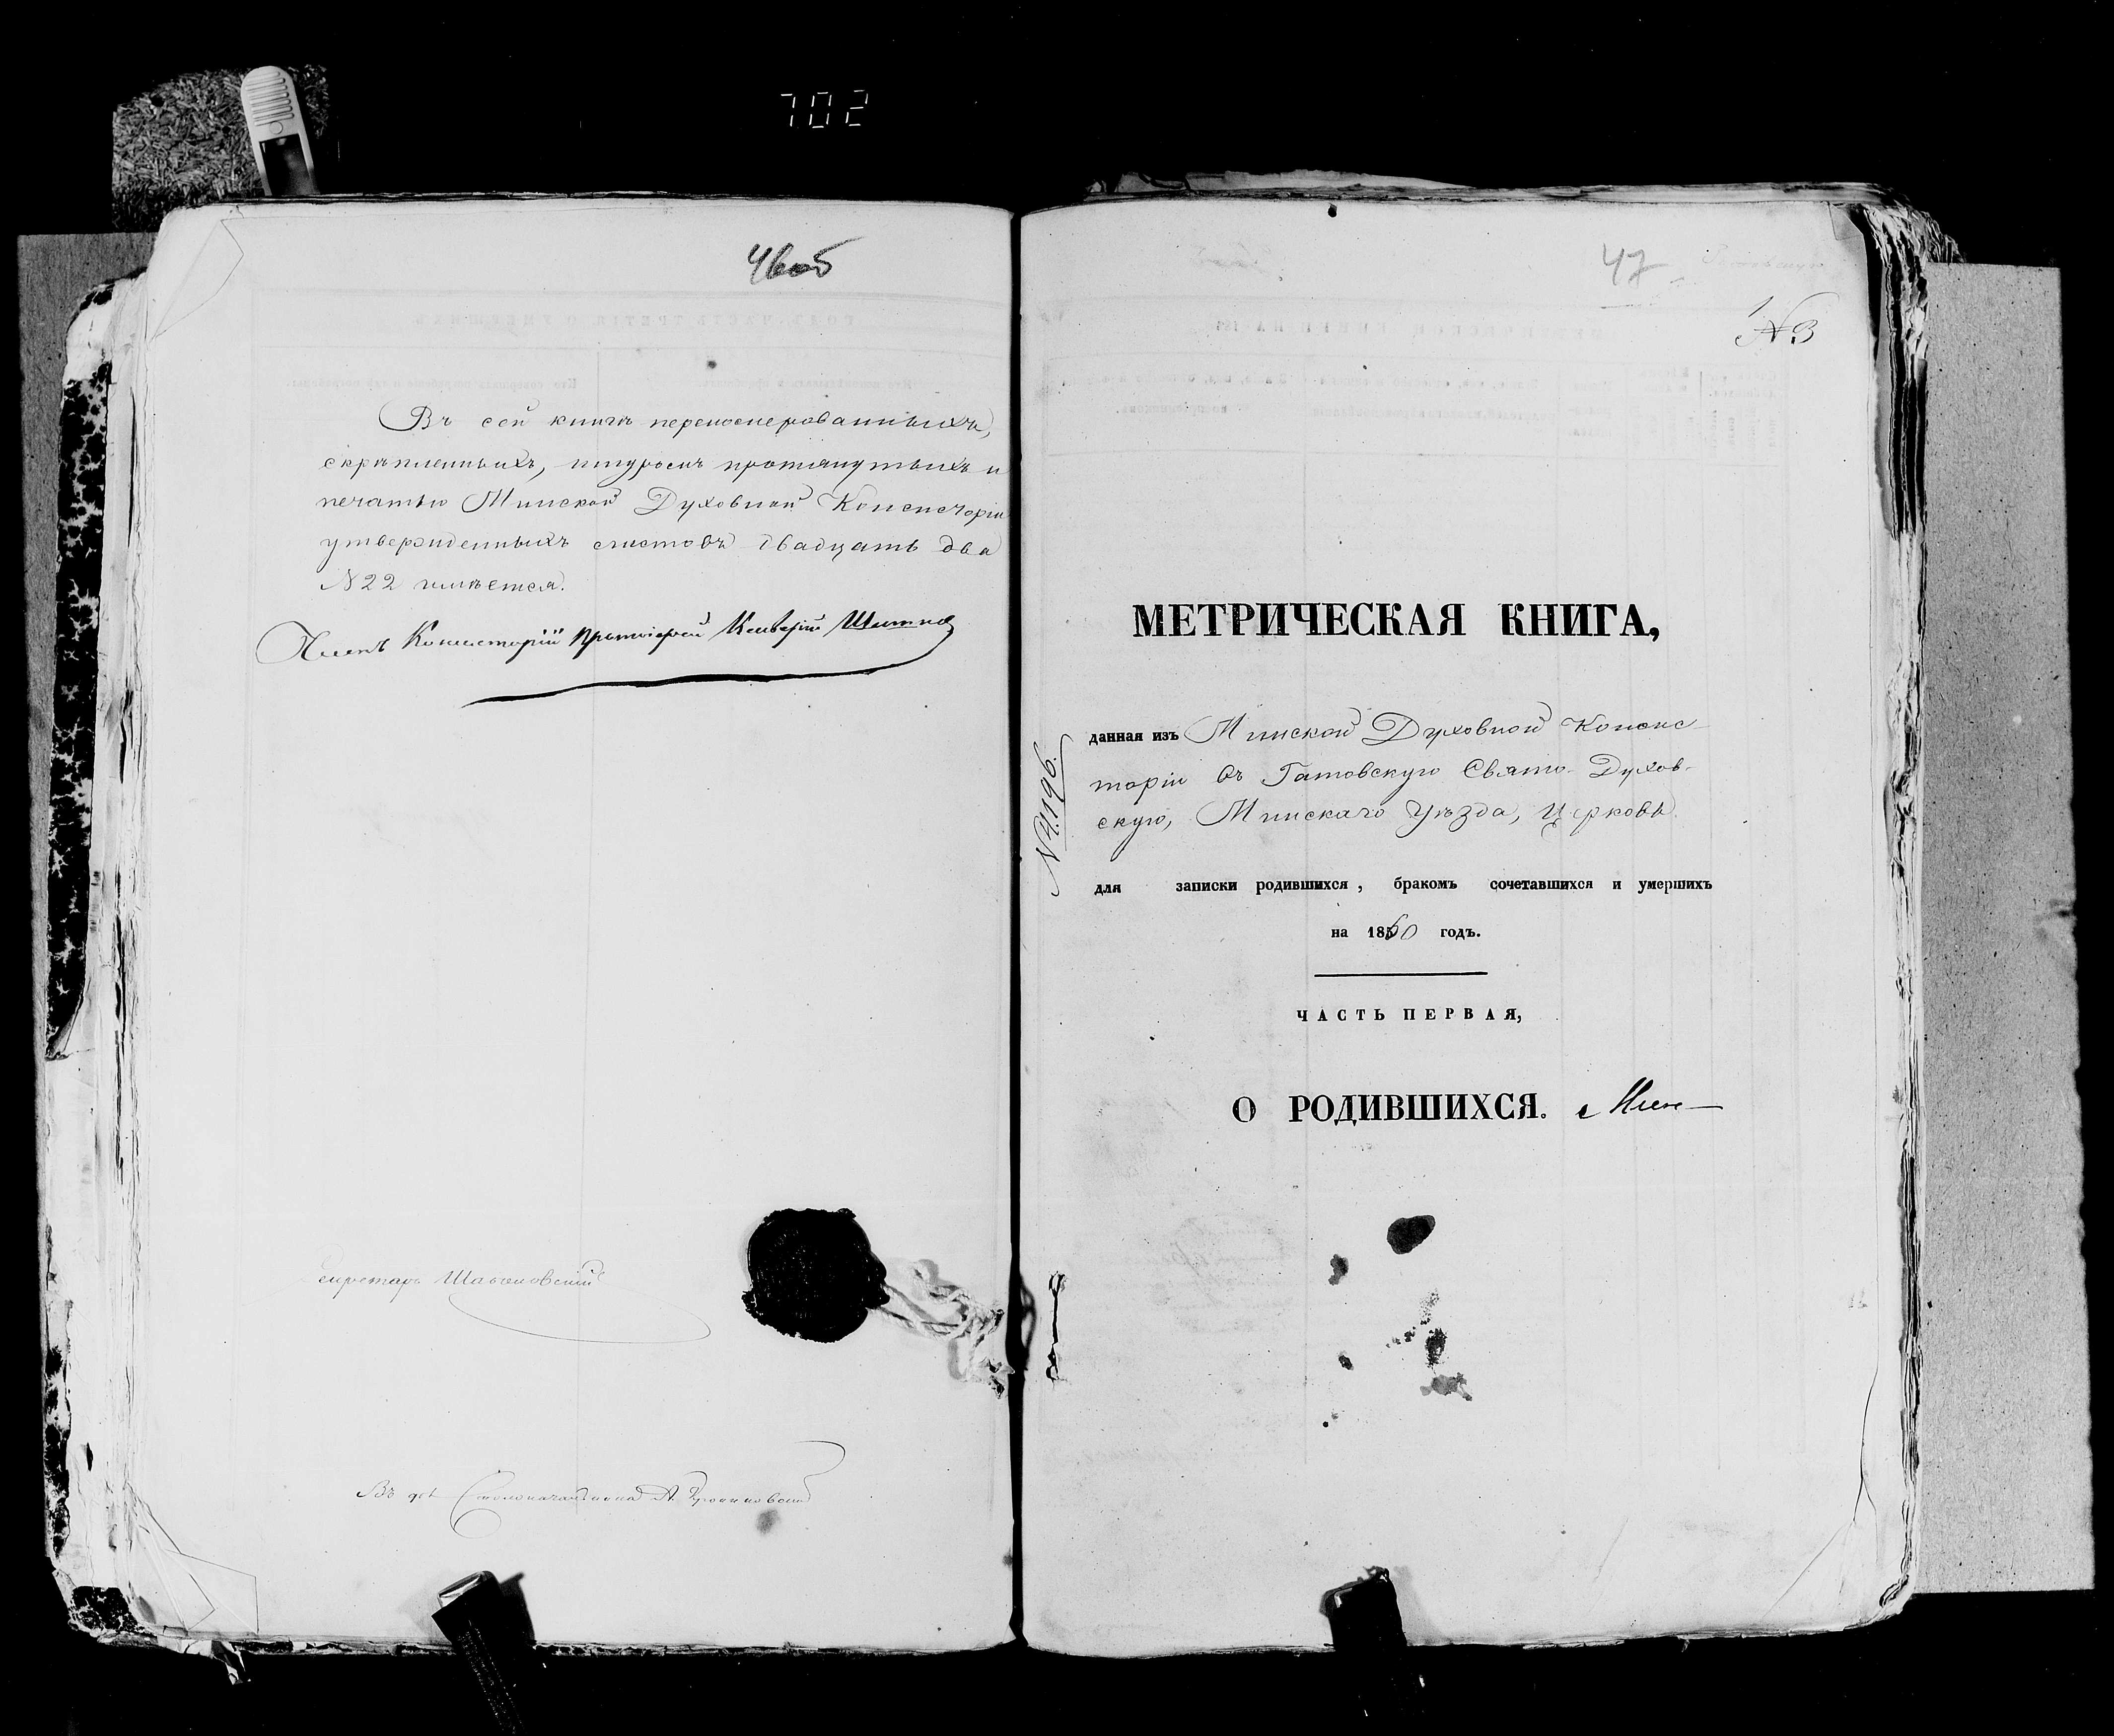 702
46об
Въ сей книгѣ перенумерованныхъ,
скрѣпленныхъ, шнуромъ протянутыхъ и
печатью Минской Духовной Консисторіи
утвержденныхъ листовъ двадцать два
№ 22 имѣется.
Членъ Консисторіи Протоіерей
Секретарь
Столоначальника
47
№ 3
МЕТРИЧЕСКАЯ КНИГА,
данная изъ Минской Духовной Консис-
торіи въ Гатовскую Свято-Духов-
скую, Минскаго Уѣзда, Церковь
№ 4196.
для записки родившихся, бракомъ сочетавшихся и умершихъ
на 1860 годъ.
ЧАСТЬ ПЕРВАЯ,
О РОДИВШИХСЯ.